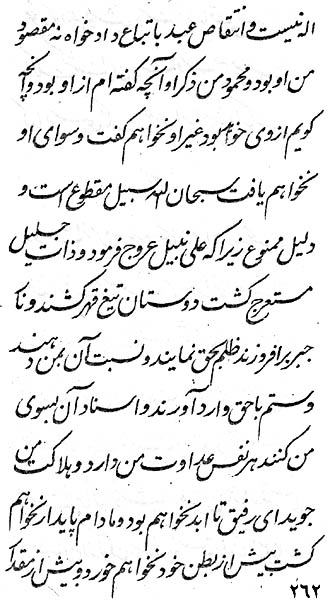 اله نیست و انتقاص عبد باتباع دادخواه نه مقصود
من او بود و محمود من ذکر او آنچه گفته‌ام از او بود و آنچه
گویم از وی خواهد بود غیر او نخواهم گفت و سوای او
نخواهم یافت سبحان الله سبیل مقطوع است و
دلیل ممنوع زیرا که علی نبیل عروج فرمود و ذات جلیل
مستعرج گشت دوستان تیغ قهر کشند و نار
جبر برافروزند ظلم بحق نمایند و نسبت آن بمن دهند
و ستم با حق وارد آورند و اسناد آن بسوی
من کنند هر نفس عداوت من دارد و هلاکت من
جوید ای رفیق تا ابد نخواهم بود و مادام پایدار نخواهم
گشت بیش از بطن خود نخواهم خورد و بیش از قدک
۲۶۲